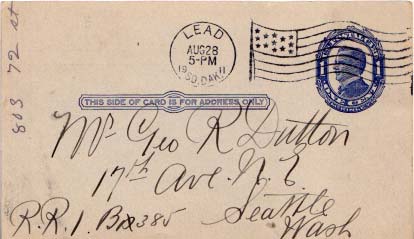 LEAD
AUG 28
5-PM
1911
SO. DAK.
THIS SIDE OF CARD IS FOR ADDRESS ONLY
803 72 st
Mr Geo R Dutton
17th Ave. N. E
Seattle
Wash
R.R. 1. Bx 385